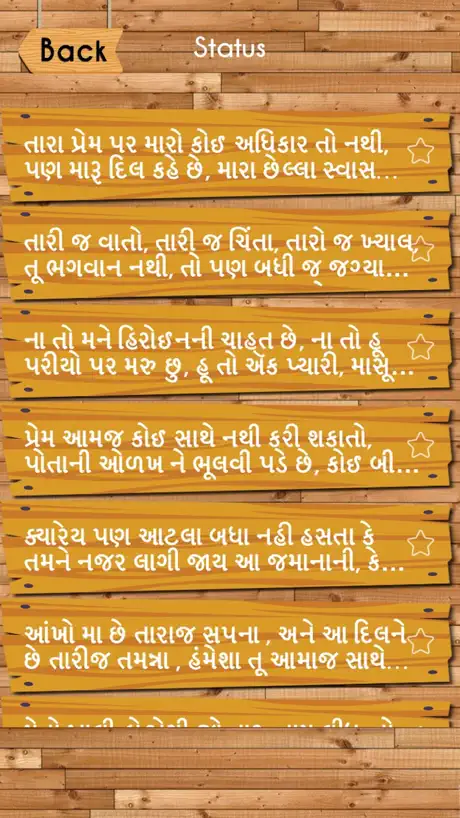 Back
Status
તારા પ્રેમ પર મારો કોઈ અધિકાર તો નથી,
પણ મારૂ દિલ કહે છે, મારા છેલ્લા સ્વાસ...
તારી જ વાતો, તારી જ ચિંતા, તારો જ ખ્યાલ,
તૂ ભગવાન નથી, તો પણ બધી જ જગ્યા...
ના તો મને હિરોઈનની ચાહત છે, ના તો હૂ
પરીયો પર મરુ છુ, હૂ તો એક પ્યારી, માસૂ...
પ્રેમ આમજ કોઈ સાથે નથી કરી શકાતો,
પોતાની ઓળખ ને ભૂલવી પડે છે, કોઈ બી...
ક્યારેય પણ આટલા બધા નહી હસતા કે
તમને નજર લાગી જાય આ જમાનાની, કે...
આંખો મા છે તારાજ સપના , અને આ દિલને
છે તારીજ તમન્ના , હંમેશા તૂ આમાજ સાથે...